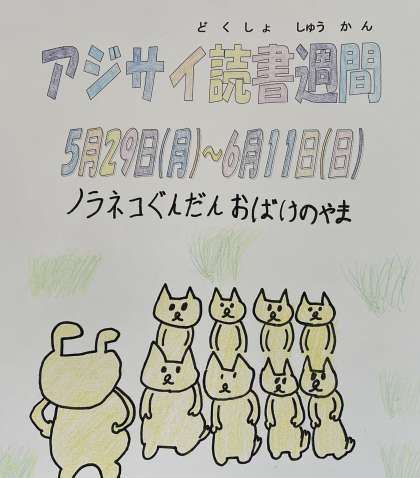 どくしょ しゅうかん
アジサイ読書週間
5月29日(月)~6月11日(日)
ノラネコぐんだん おばけのやま